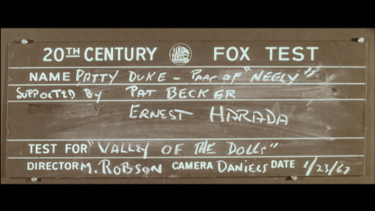 20TH CENTURY FOX TEST
NAME PATTY DUKE - PART OF "NEELY"
SUPPORTED BY PAT BECKER
ERNEST HARADA
TEST FOR "VALLEY OF THE DOLLS"
DIRECTOR M. ROBSON CAMERA DANIELS DATE 1/23/67